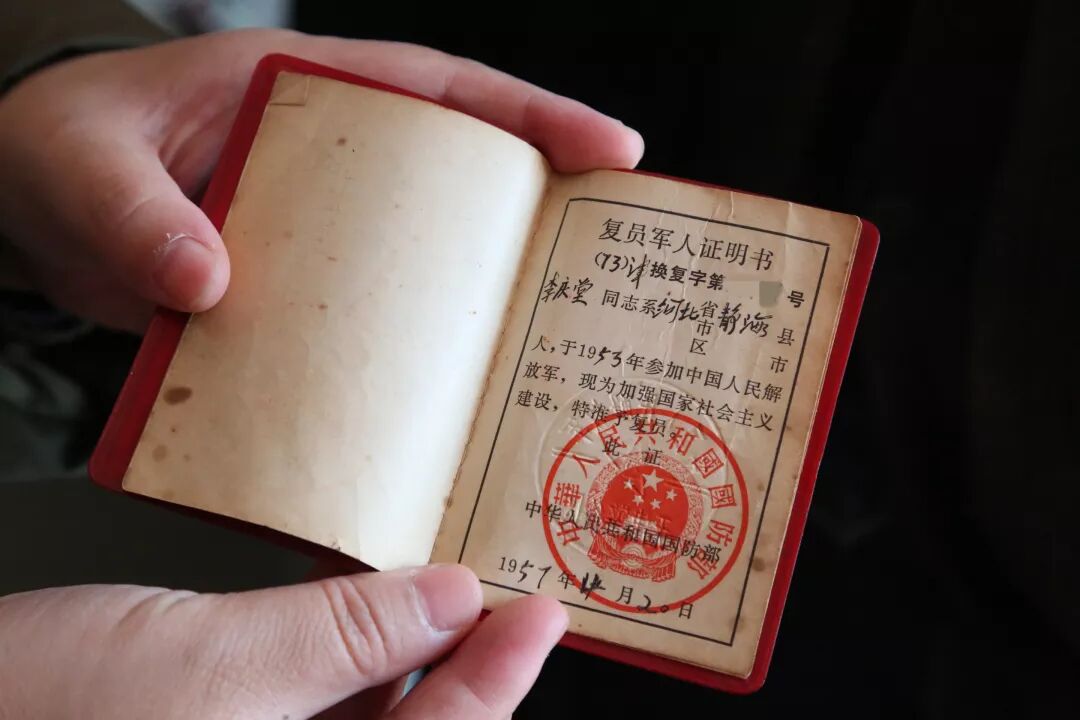 复员军人证明书
(73)津换复字第 号
李庆堂 同志系河北省市区静海县市
人,于1953年参加中国人民解
放军,现为加强国家社会主义
建设,特准予复员。
此 证
中华人民共和国国防部
1957年4月20日
中華人民共和國國防部